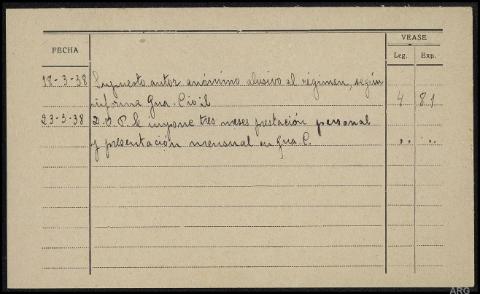 FECHA VEASE
Leg. Exp.
18-3-38 Supuesto autor anónimo alusivo al régimen, según
informa Gua. Civil 4 81
23-5-38 D.O.P. le impone tres meses prestación personal
y presentación mensual en Gua. C. " "
ARG